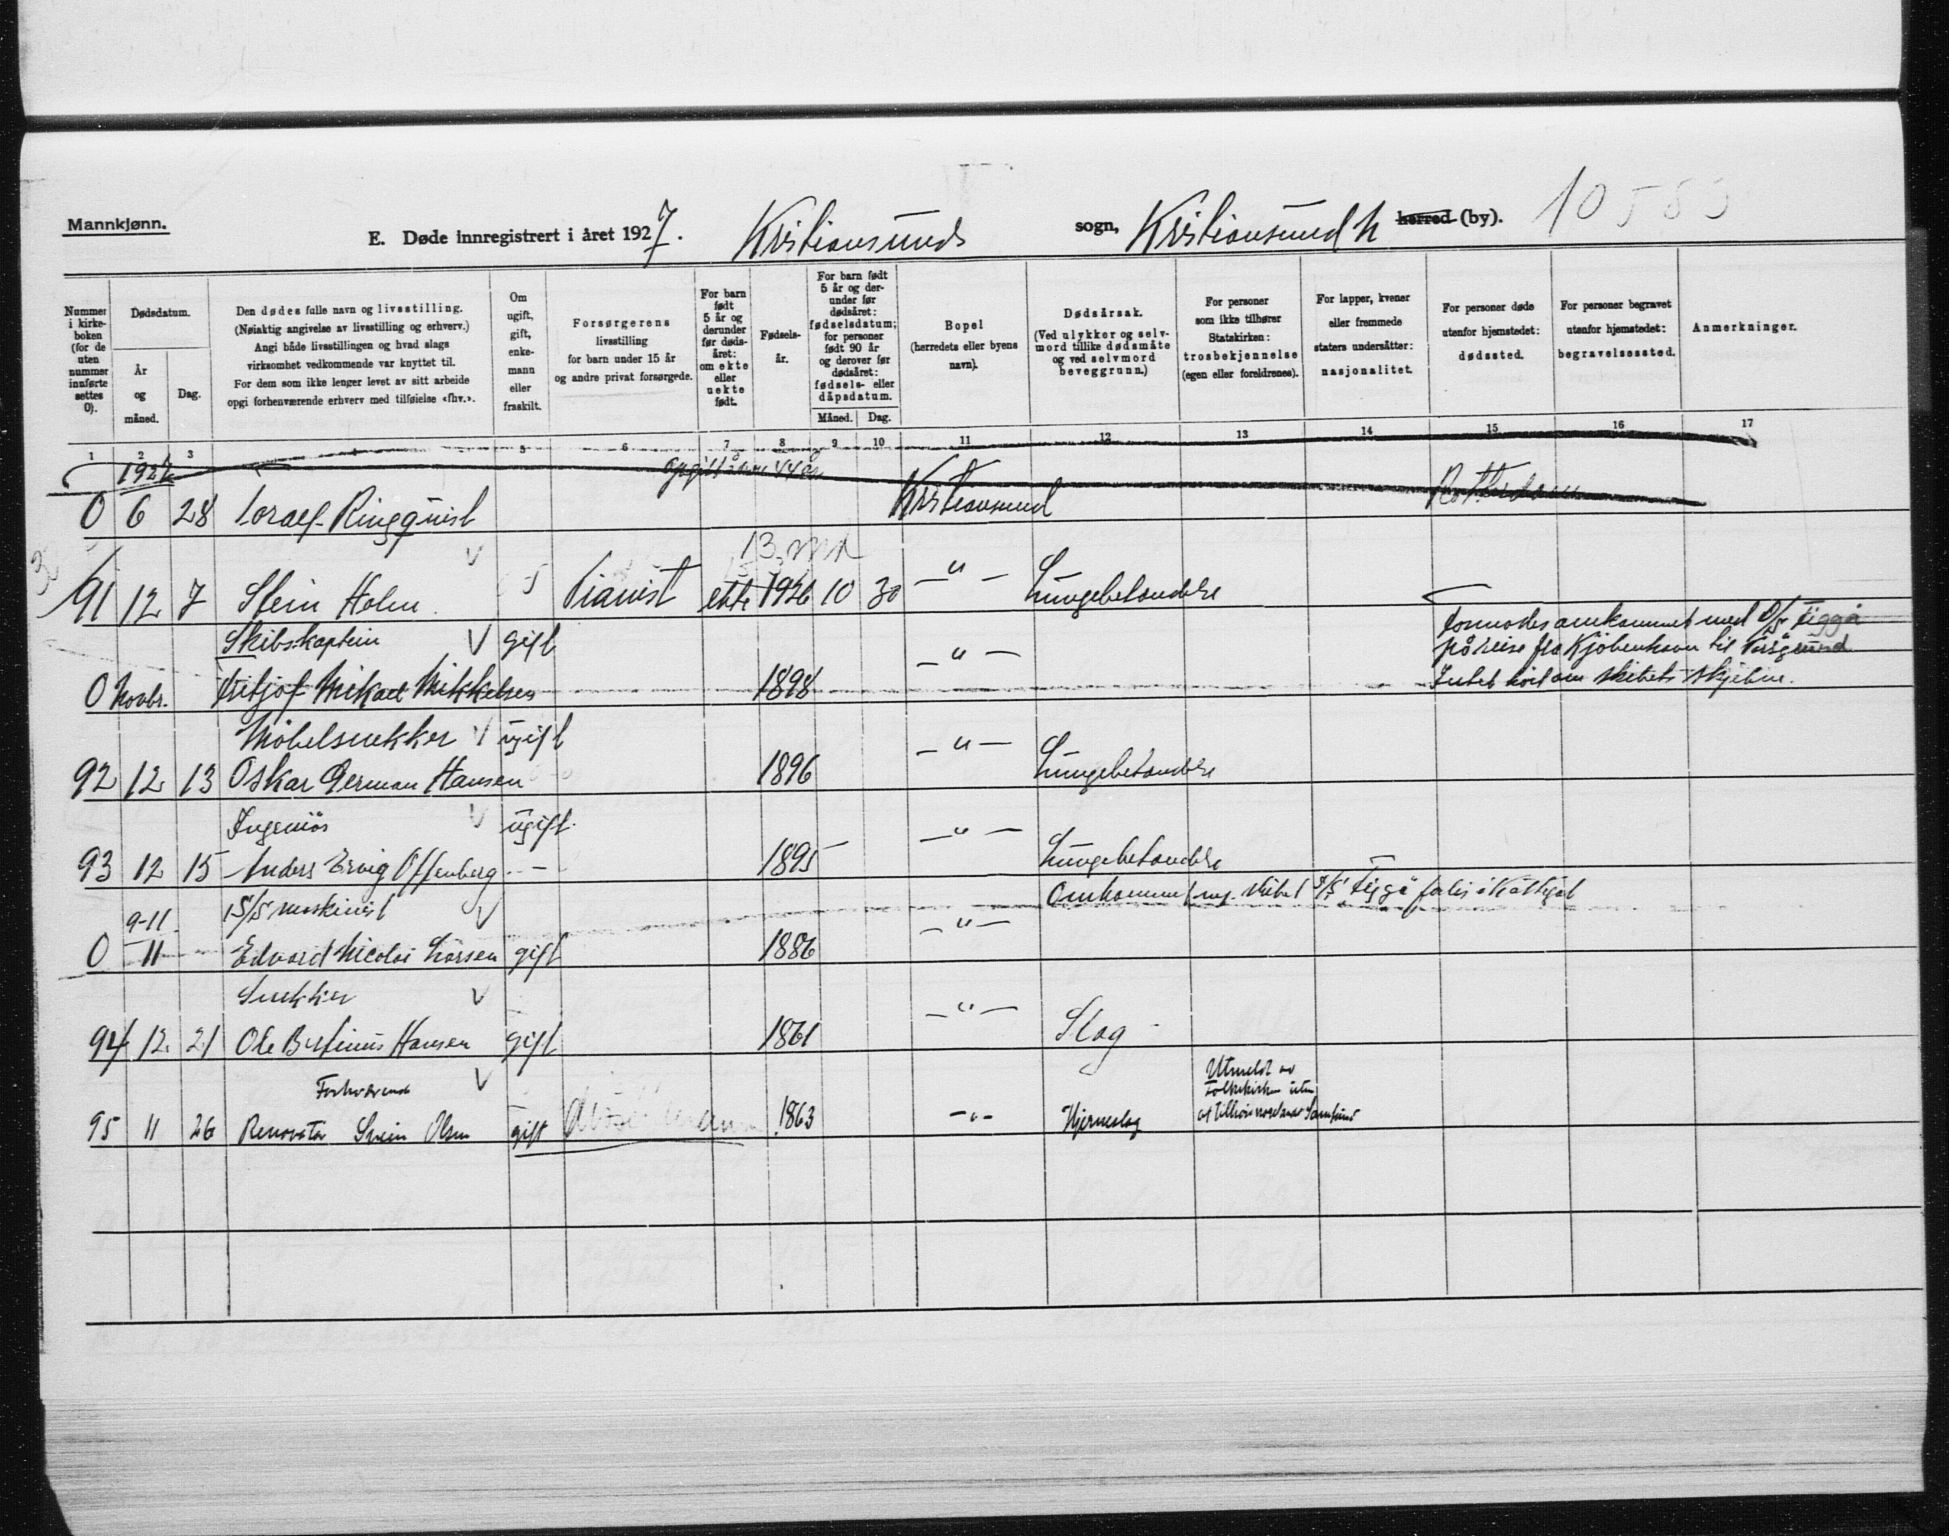 Mannkjønn.
E. Døde innregistrert i året 1927. Kristiansunds sogn, Kristiansund N herred (by). 10583
Nummer i kirkeboken (for de uten nummer innførte settes 0).
Dødsdatum.
År og måned.
Dag.
Den dødes fulle navn og livsstilling.
(Nøiaktig angivelse av livsstilling og erhverv.)
Angi både livsstillingen og hvad slags
virksomhet vedkommende var knyttet til.
For dem som ikke lenger levet av sitt arbeide
opgi forhenværende erhverv med tilføielse «fhv.».
Om ugift, gift, enkemann eller fraskilt.
Forsørgerens
livsstilling
for barn under 15 år
og andre privat forsørgede.
For barn født 5 år og derunder før dødsåret: om ekte eller uekte født.
Fødselsår.
For barn født 5 år og derunder før dødsåret: fødselsdatum; for personer født 90 år og derover før dødsåret: fødsels- eller dåpsdatum.
Måned. Dag.
Bopel
(herredets eller byens
navn).
Dødsårsak.
(Ved ulykker og selvmord tillike dødsmåte og ved selvmord beveggrunn.)
For personer
som ikke tilhører
Statskirken:
trosbekjennelse
(egen eller foreldrenes).
For lapper, kvener
eller fremmede
staters undersåtter:
nasjonalitet.
For personer døde
utenfor hjemstedet:
dødssted.
For personer begravet
utenfor hjemstedet:
begravelsessted.
Anmerkninger.
1 2 3 4 5 6 7 8 9 10 11 12 13 14 15 16 17
192
0 6 28 Toralf Ringquist 44 år Kristiansund Rotterdam
13 md
91 12 7 Stein Holm Pianist ekte 1926 10 30 —"— Lungebetendelse
Skibskaptein gift
0 Novbr. Fritjof Mikael Mikkelsen 1898 —"—
Formodes omkommet med D/S Tiggå
på reise fra Kjøbenhavn til
Intet hørt om skibets skjebne.
Møbelsnekker ugift
92 12 13 Oskar German Hansen 1896 —"— Lungebetendelse
Ingeniør ugift.
93 12 15 Anders Ervig Offenberg 1895 —"— Lungebetendelse
9-11 S/S maskinist Omkommet m. skibet S/S Tiggå forlis i Kattegat
0 11 Edvard Nicolai Larsen gift 1886 —"—
Snekker
94 12 21 Ole Bertinius Hansen gift 1861 —"— Slag
Forhværende
95 11 26 Renovatør Svein Olsen gift 1863 —"— Hjerneslag
Utmeldt av
Folkekirken uten
at tilhøre noe annet Samfund